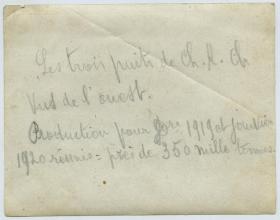 Les trois puits de Ch. R. Ch.
Vus de l'ouest.
Production pour 1919 et janvier
1920 réunis = près de 350 mille tonnes.